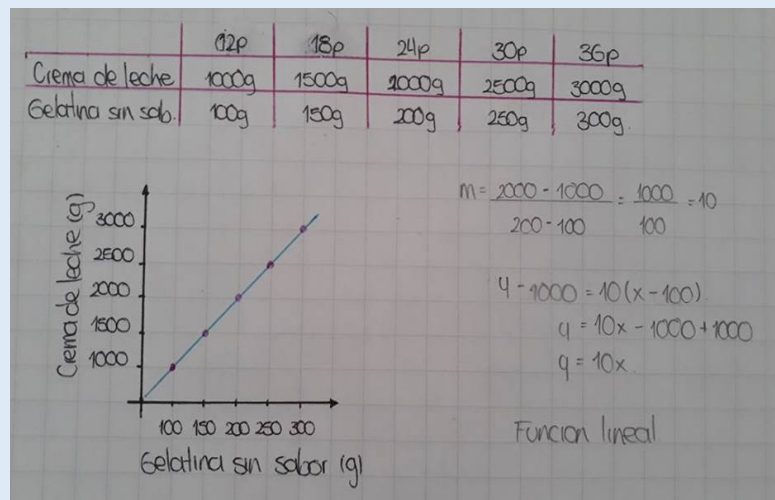 12p 18p 24p 30p 36p
Crema de leche 1000g 1500g 2000g 2500g 3000g
Gelatina sin sab. 100g 150g 200g 250g 300g
Crema de leche (g)
3000
2500
2000
1500
1000
100 150 200 250 300
Gelatina sin sabor (g)
m = 2000 - 1000 / 200 - 100 = 1000 / 100 = 10
y - 1000 = 10(x - 100)
y = 10x - 1000 + 1000
y = 10x
Funcion lineal